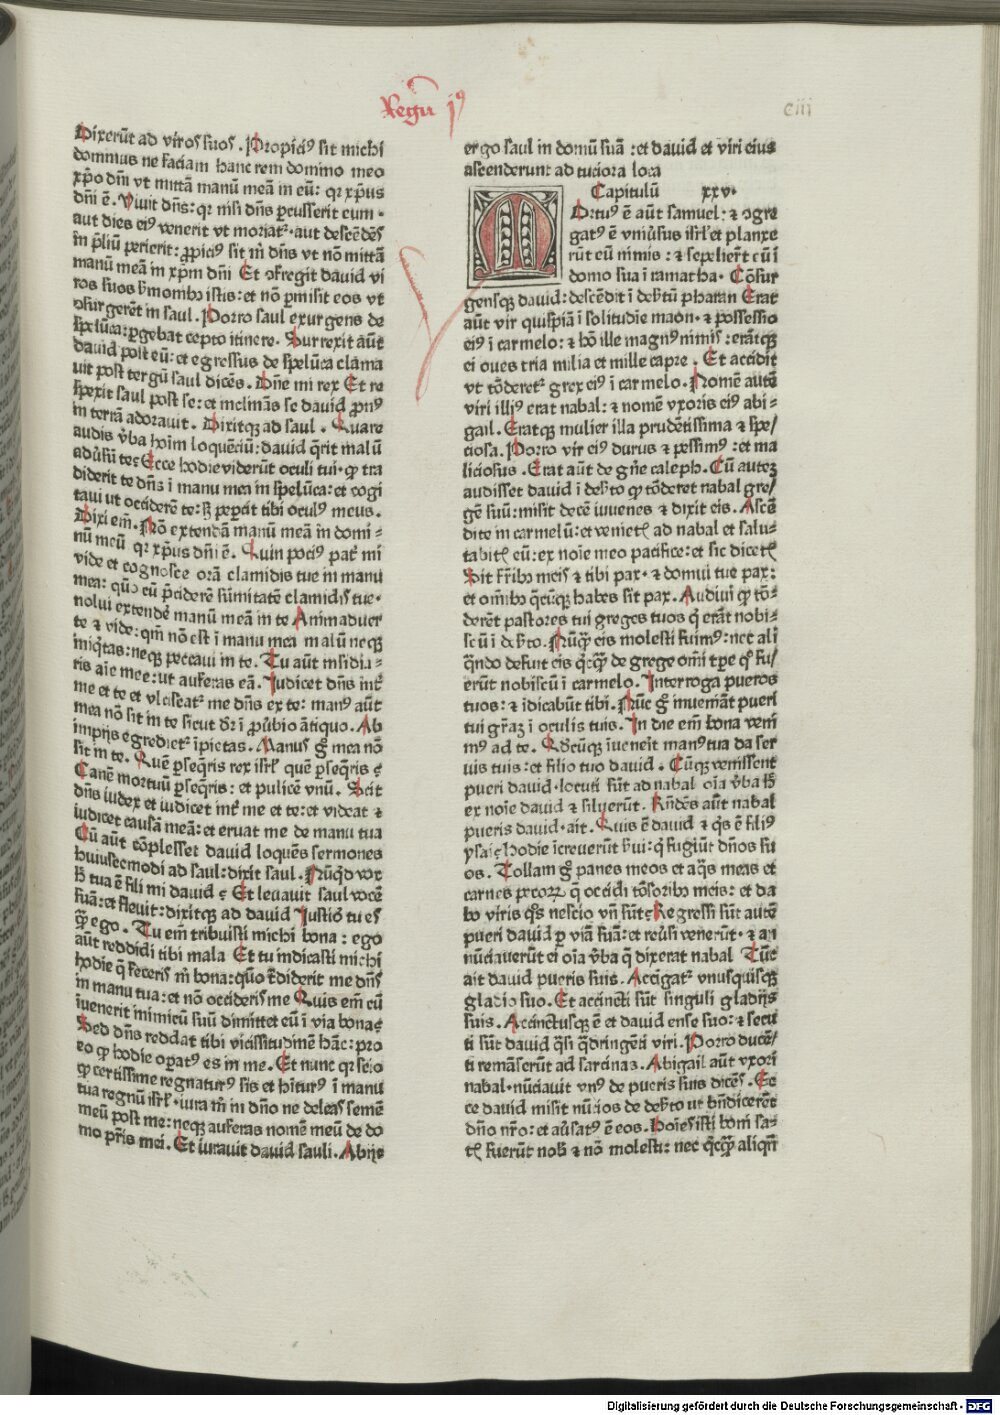 Regũ jꝰ
ciii
Dixerũt ad viros suos. Propiciꝰ sit michi
dominus ne faciam hanc rem domino meo
xp̃o dñi vt mittã manũ meã in eũ: qꝛ xp̃us
dñi ẽ. Viuit dñs: qꝛ nisi dñs ꝑcusserit eum ·
aut dies eiꝰ venerit vt moriat᷑ · aut descẽdẽs
in p̃liũ perierit: ꝓpiciꝰ sit m̃ dñs vt nõ mittã
manũ meã in xp̃m dñi Et ɔfregit dauid vi
ros suos ẜmonibꝰ istis: et nõ ꝑmisit eos vt
ɔsurgerẽt in saul. Porro saul exurgens de
spelũca: ꝑgebat cepto itinere. Surrexit aũt
dauid post eũ: et egressus de spelũca clama
uit post tergũ saul dicẽs. Dñe mi rex Et re
spexit saul post se: et inclinãs se dauid ꝓnꝰ
in terrã adorauit. Dixitqꝫ ad saul. Quare
audis v̉ba hoĩm loquẽciũ: dauid q̃rit malũ
adũsũ te? Ecce hodie viderũt oculi tui · ꝙ tra
diderit te dñs ĩ manu mea in spelũca: et cogi
taui ut occiderẽ te: sꝫ peꝑcit tibi oculꝰ meus.
Dixi em̃. Nõ extendã manũ meã in domi-
nũ meũ qꝛ xp̃us dñi ẽ. Quin pociꝰ pat᷑ mi
vide et cognosce orã clamidis tue in manu
mea: quõ cũ p̃ciderẽ sũmitatẽ clamidis tue ·
nolui extendẽ manũ meã in te Animaduer
te ⁊ vide: qm̃ nõ est ĩ manu mea malũ neqꝫ
iniq̃tas: neqꝫ peccaui in te. Tu aũt insidia-
ris aĩe mee: ut auferas eã. Iudicet dñs int̉
me et te et vlciscat᷑ me dñs ex te: manꝰ aũt
mea nõ sit in te sicut dr̃ ĩ ꝓũbio ãtiquo. Ab
impijs egrediet᷑ ĩpietas. Manus g̃ mea nõ
sit in te. Quẽ ꝑseq̃ris rex isrl̃ quẽ ꝑseq̃ris ?
Canẽ mortuũ ꝑseq̃ris: et pulicẽ vnũ. Scit
dñs iudex et iudicet int̉ me et te: et videat ⁊
iudicet causã meã: et eruat me de manu tua
Cũ aũt cõplesset dauid loquẽs sermones
huiuscemodi ad saul: dixit saul. Nũq̃d vox
hꝫ tua ẽ fili mi dauid ? Et leuauit saul vocẽ
suã: et fleuit: dixitqꝫ ad dauid Iustiõ tu es
q̃ꝫ ego. Tu em̃ tribuisti michi bona: ego
aũt reddidi tibi mala Et tu indicasti michi
hodie q̃ feceris m̃ bona: quõ t̃diderit me dñs
in manu tua: et nõ occideris me Quis em̃ cũ
ĩuenerit inimicũ suũ dimittet eũ ĩ via bona?
Sed dñs reddat tibi vicissitudinẽ hãc: pro
eo ꝙ hodie oꝑatꝰ es in me. Et nunc qꝛ scio
ꝙ certissime regnaturꝰ sis et hĩturꝰ ĩ manu
tua regnũ isrl̃ · iura m̃ in dño ne deleas semẽ
meũ post me: neqꝫ auferas nomẽ meũ de do
mo pr̃is mei. Et iurauit dauid sauli. Abijt
ergo saul in domũ suã: et dauid et viri eius
ascenderunt ad tuciora loca
Capitulũ xxv.
MOrtuꝰ ẽ aũt samuel: ⁊ ɔgre
gatꝰ ẽ vniũsus isrl̃ et planxe
rũt eũ nimis: ⁊ sepeliert̃ eũ ĩ
domo sua ĩ ramatha. Cõsur
gensqꝫ dauid: descẽdit ĩ deẜtũ pharan Erat
aũt vir quispiã ĩ solitudie maon · ⁊ possessio
eiꝰ ĩ carmelo: ⁊ hõ ille magnꝰ nimis: erãtqꝫ
ei oues tria milia et mille capre. Et accidit
vt tõderet᷑ grex eiꝰ ĩ carmelo. Nomẽ autẽ
viri illiꝰ erat nabal: ⁊ nomẽ vxoris eiꝰ abi-
gail. Eratqꝫ mulier illa prudẽtissima ⁊ spe/
ciosa. Porro vir eiꝰ durus ⁊ pessimꝰ: et ma
liciosus. Erat aũt de gñe caleph. Cũ autez
audisset dauid ĩ deẜto ꝙ tõderet nabal gre/
gẽ suũ: misit decẽ iuuenes ⁊ dixit eis. Ascẽ
dite in carmelũ: et veniet᷑ ad nabal et salu-
tabit᷑ eũ: ex noĩe meo pacifice: et sic dicet᷑
Sit fr̃ibꝰ meis ⁊ tibi pax · ⁊ domui tue pax:
et om̃ibꝰ q̃cũqꝫ habes sit pax. Audiui ꝙ tõ-
derẽt pastores tui greges tuos q̃ erãt nobi-
scũ ĩ deẜto. Nũq̃ꝫ eis molesti fuimꝰ: nec ali
q̃ndo defuit eis q̃cq̃ꝫ de grege om̃i tꝑe q̃ fu/
erũt nobiscũ ĩ carmelo. Interroga pueros
tuos: ⁊ ĩdicabũt tibi. Nũc g̃ inueniãt pueri
tui gr̃aꝫ ĩ oculis tuis. In die em̃ bona veni
mꝰ ad te. Qd̃cũqꝫ ĩueneĩt manꝰ tua da ser
uis tuis: et filio tuo dauid. Cũqꝫ venissent
pueri dauid · locuti sũt ad nabal oĩa v̉ba hꝫ
ex noĩe dauid ⁊ siluerũt. Rñdẽs aũt nabal
pueris dauid · ait. Quis ẽ dauid ⁊ q̃s ẽ filiꝰ
ysai? hodie ĩcreuerũt ẜui: q̃ fugiũt dños su
os. Tollam g̃ panes meos et aq̃s meas et
carnes pecorꝝ q̃ occidi tõsoribꝰ meis: et da
bo viris q̃s nescio vñ sũt? Regressi sũt autẽ
pueri dauid ꝑ viã suã: et reũsi venerũt · ⁊ an
nũciauerũt ei oĩa v̉ba q̃ dixerat nabal Tũc
ait dauid pueris suis. Accigat᷑ vnusquisqꝫ
gladio suo. Et accincti sũt singuli gladijs
suis. Accinctusqꝫ ẽ et dauid ense suo: ⁊ secu
ti sũt dauid q̃si q̃dringẽti viri. Porro ducẽ/
ti remãserũt ad sarcinas. Abigail aũt vxori
nabal · nũciauit vnꝰ de pueris suis dicẽs. Ec
ce dauid misit nũcios de deẜto ut bñdicerẽt
dño nr̃o: et aũsatꝰ ẽ eos. Hoĩes isti boni sa-
t᷑ fuerũt nobꝭ ⁊ nõ molesti: nec q̃cq̃ꝫ aliqñ
Digitalisierung gefördert durch die Deutsche Forschungsgemeinschaft - DFG